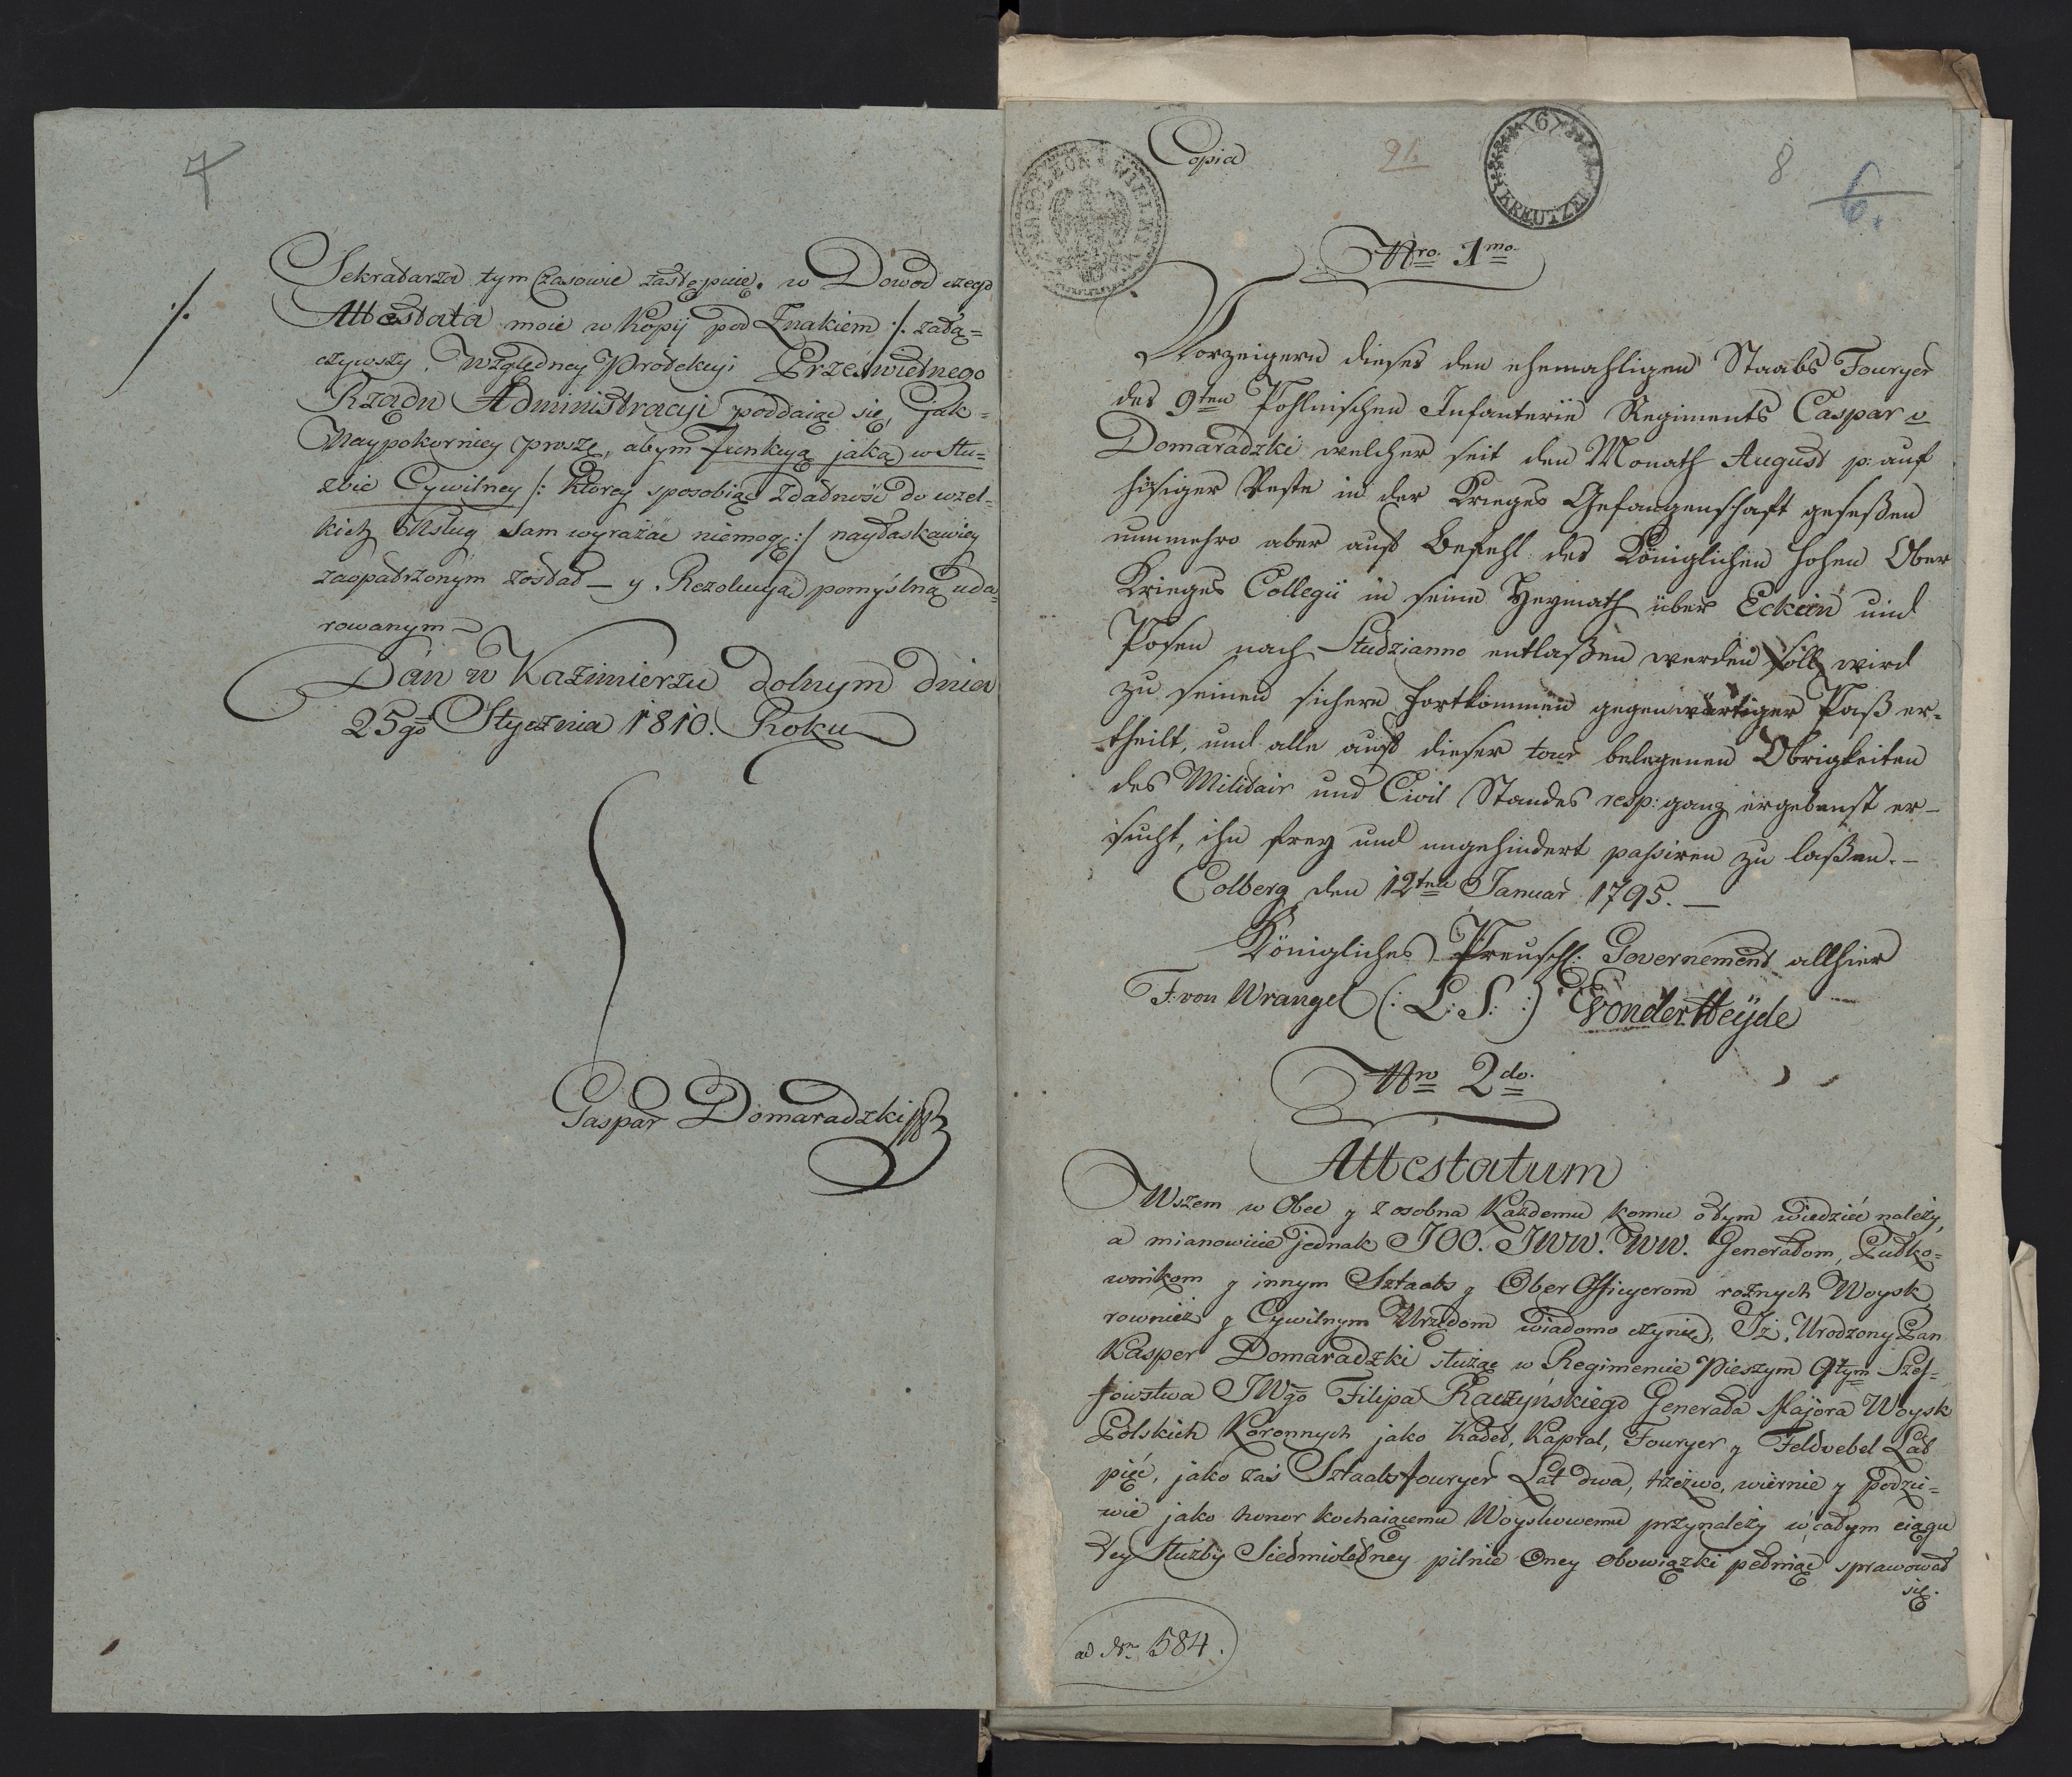 7
Sekretarza tym czasowie zastępuię. w Dowod czego
./.
Attestata moie w Kopij pod Znakiem ./. załą=
czywszy. Względney Protekcyi Prześwietnego
Rządu Administracyi poddaiąc się, jak=
Naypokorniey proszę, abym funkcyą jaką w słu=
żbie Cywilney /: Ktorey sposobiąc Zdatność do wzel=
kich Usług sam wyrażać niemogę :/ nayłaskawiey
zaopatrzonym został – y Rezolucyą pomyślną uda=
rowanym –
Dan w Kazimierzu dolnym dnia
25go Stycznia 1810. Roku
Gaspar Domaradzki
Copia
91.
6
KREUTZER
8
6.
NAPOLEON WIELKI
Nro. 1mo.
Vorzeigern dieses den ehemahligen Staabs Fouryer
des 9ten Pohlnischen Infanterie Regiments Caspar v
Domaradzki welcher seit den Monath August p: auf
hiesiger Veste in der Krieges Gefangenschaft geseßen
nunmehro aber auf Befehl des Königlichen hohen Ober
Krieges Collegii in seine Heymath über Eckein und
Posen nach Studzianno entlaßen werden soll, wird
zu seinen sichern fortkommen gegenwärtiger Paß er=
theilt, und alle auf dieser tour belegenen Obrigkeiten
des Militair und Civil Standes resp: ganz ergebenst er–
sucht, ihn frey und ungehindert passiren zu laßen.–
Colberg den 12ten Januar 1795.–
Königliches Preusch: Governement allhier
F: von Wrangel (: L: S: :) Vonder Heyde
Nro 2do.
Attestatum
Wszem w Obec y z osobna Każdemu komu o tym wiedzieć należy,
a mianowicie jednak JOO. JWW. WW. Generałom, Pułko=
wnikom y innym Sztaabs y Ober Officyerom rożnych Woysk,
rownież y Cywilnym Urzędom wiadomo czynię, Iż, Urodzony Pan
Kasper Domaradzki służąc w Regimencie Pieszym 9tym Szef=
fowstwa JWgo Filipa Raczyńskiego Generała Majora Woysk
Polskich Koronnych jako Kadet, Kapral, Fouryer y Feldvebel Lat
pięć, jako zaś Sztaabsfouryer Lat dwa, trzeźwo, wiernie y poczci=
wie jako honor kochaiącemu Woyskowemu przynależy w całym ciągu
tey Służby Siedmioletney pilnie Oney obowiązki pełniąc sprawował
się.
ad Nr. 584.